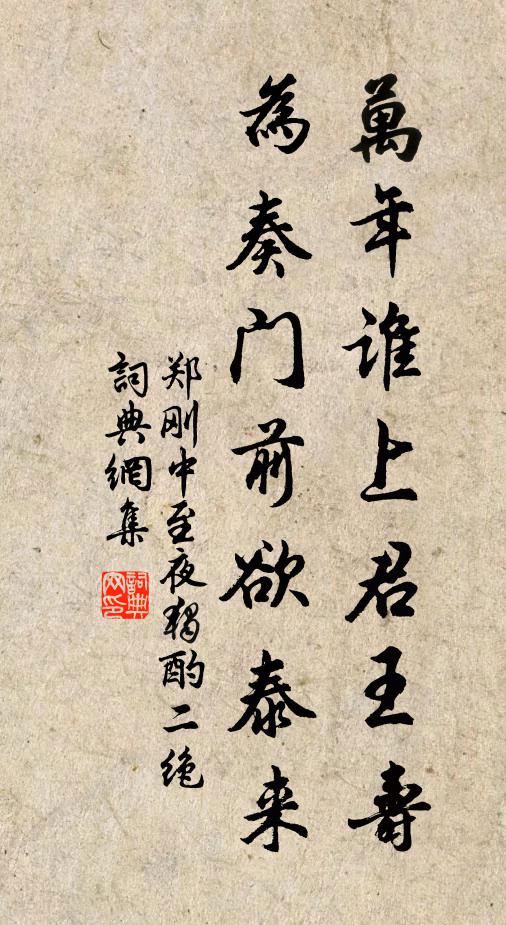 萬年誰上君王壽
為奏門前欲泰来
郑刚中至夜獨酌二绝
詞典網集
詞典網印